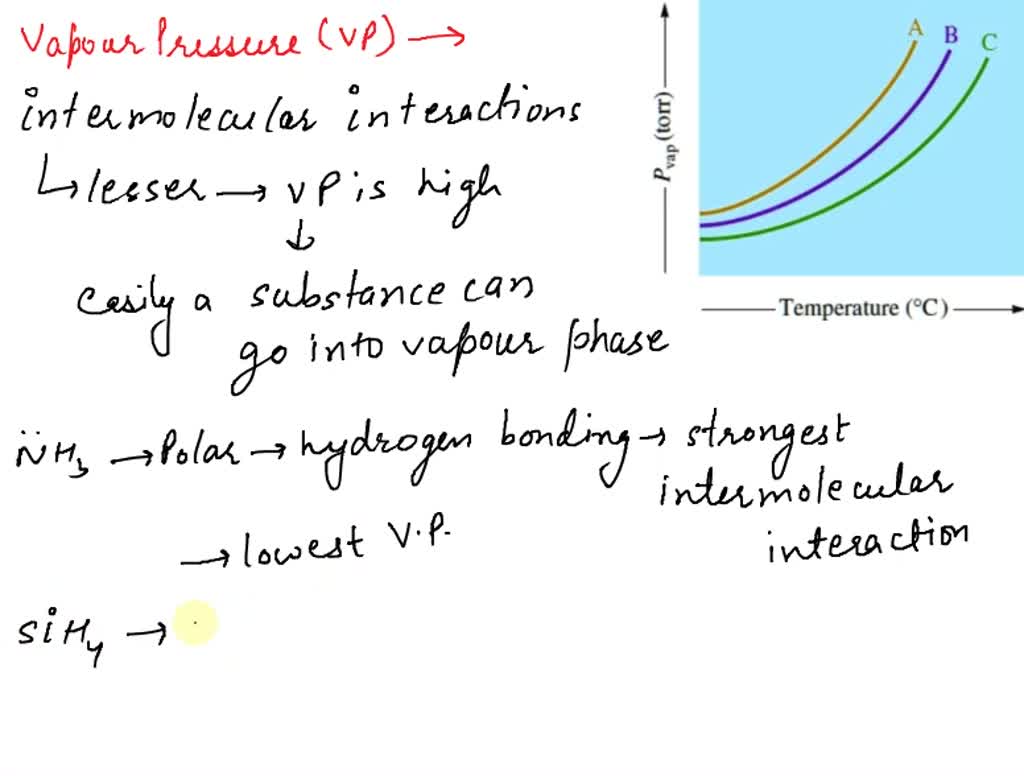 Vapour Pressure (VP) →
intermolecular interactions
↳ lesser → VP is high
↓
easily a substance can
go into vapour phase
N̈H₃ → Polar → hydrogen bonding → strongest
intermolecular
interaction
→ lowest V.P.
SiH₄ →
A B C
Pvap (torr)
Temperature (°C)